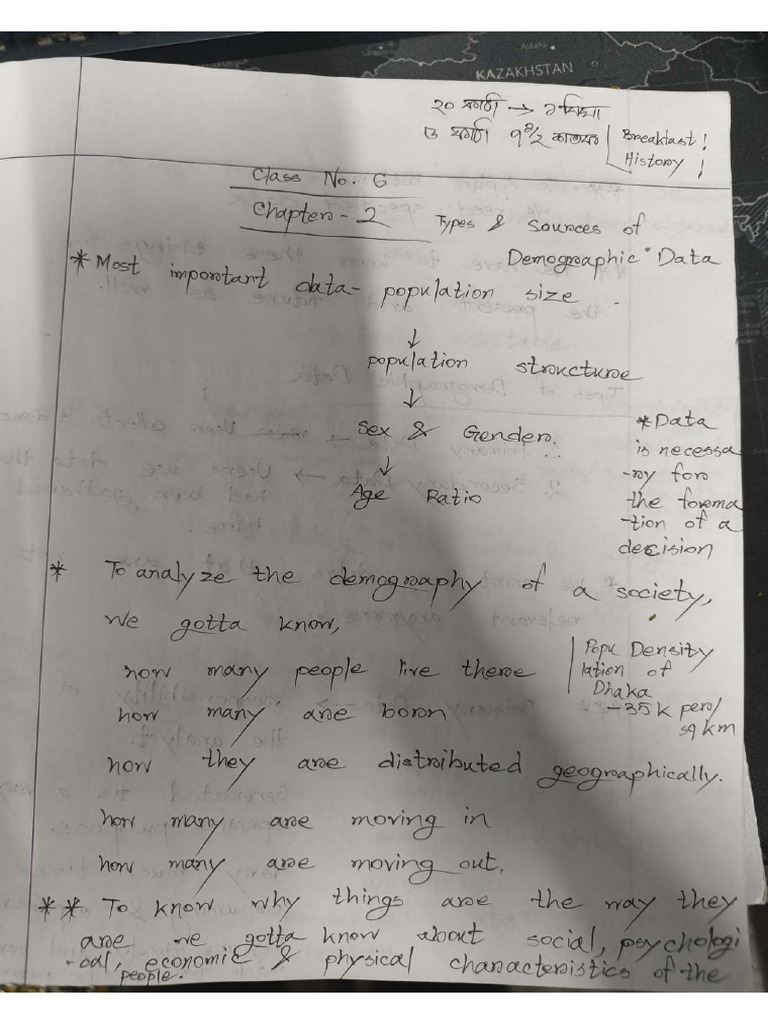 KAZAKHSTAN
২০ কাঠা → ১ বিঘা
৩ কাঠা
Breakfast!
History!
Class No. 6
Chapter - 2
Types & Sources of
Demographic Data
* Most important data - population size.
↓
population structure
↓
Sex & Gender.
↓
Age Ratio
* Data
is necessa
-ry for
the forma
-tion of a
decision
* To analyze the demography of a society,
we gotta know,
how many people live there
Popu Density
lation of
Dhaka
- 35k per/
sq km
how many are born
how they are distributed geographically.
how many are moving in
how many are moving out.
** To know why things are the way they
are we gotta know about social, psychologi
-cal, economic & physical characteristics of the
people.